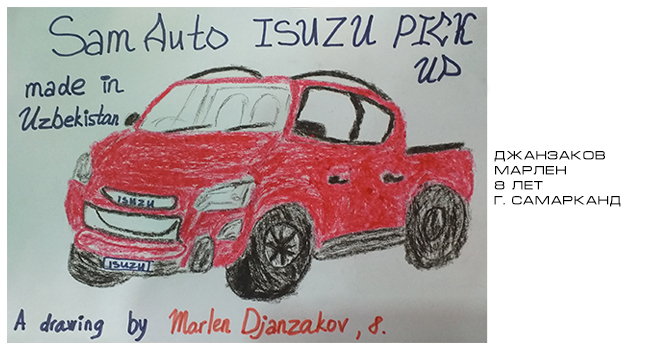 Sam Auto ISUZU PICK
UP
made in
Uzbekistan
ISUZU
ISUZU
A drawing by Marlen Djanzakov, 8.
ДЖАНЗАКОВ
МАРЛЕН
8 ЛЕТ
Г. САМАРКАНД